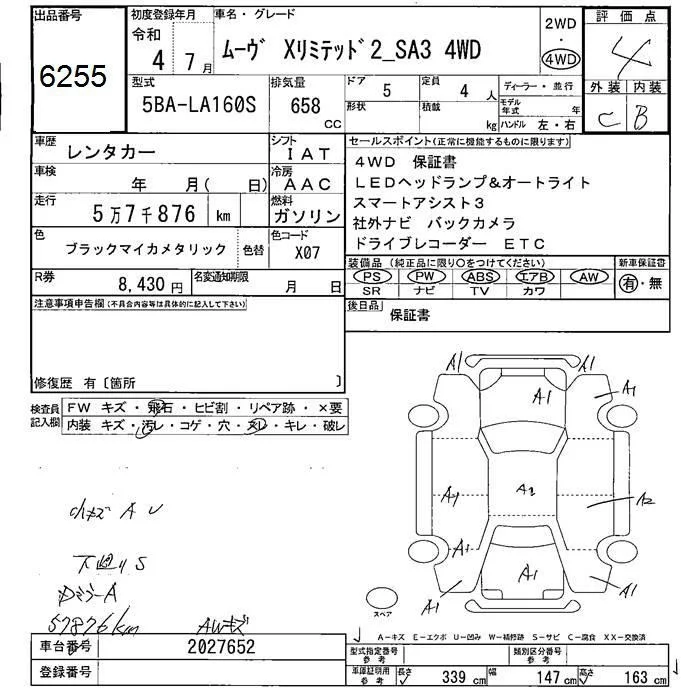 出品番号
6255
初度登録年月
令和
4 7月
車名・グレード
ムーヴ Xリミテッド2_SA3 4WD
2WD
・
4WD
評価点
4
外装 内装
C B
型式
5BA-LA160S
排気量
658
cc
ドア
5
定員
4 人
形状
積載
kg
ディーラー・並行
モデル年式 年
ハンドル 左・右
車歴
レンタカー
シフト
IAT
車検
年 月( 日)
冷房
AAC
走行
5万7千876 km
燃料
ガソリン
色
ブラックマイカメタリック
色替
色コード
X07
R券
8,430円
名変通知期限
月 日
セールスポイント(正常に機能するものに限ります)
4WD 保証書
LEDヘッドランプ&オートライト
スマートアシスト3
社外ナビ バックカメラ
ドライブレコーダー ETC
装備品 (純正品に限り○をつけてください)
PS PW ABS エアB AW
SR ナビ TV カワ
新車保証書
有・無
後日品
保証書
注意事項申告欄(不具合内容等は具体的に記入して下さい)
修復歴 有〔箇所 〕
検査員記入欄
FW キズ・飛石・ヒビ割・リペア跡・×要
内装 キズ・汚レ・コゲ・穴・スレ・キレ・破レ
小キズ A U
下廻り S
A
57876km
AWキズ
A1 A1
A1 A1
A1 A2 A2
A1
A1 A1 A1
スペア
A-キズ E-エクボ U-凹み W-補修跡 S-サビ C-腐食 XX-交換済
車台番号
2027652
登録番号
型式指定番号
参考
類別区分番号
参考
車庫証明用
参考
長さ 339 cm
幅 147 cm
高さ 163 cm